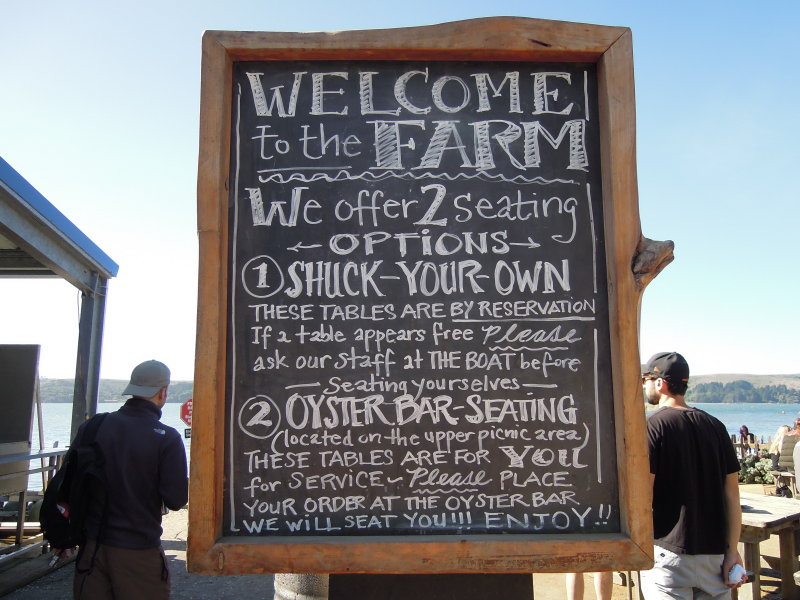 WELCOME
to the FARM
We offer 2 seating
OPTIONS
1 SHUCK-YOUR-OWN
THESE TABLES ARE BY RESERVATION
If a table appears free Please
ask our staff at THE BOAT before
— Seating yourselves —
2 OYSTER BAR-SEATING
(located on the upper picnic area)
THESE TABLES ARE FOR YOU
for SERVICE ~ Please PLACE
YOUR ORDER AT THE OYSTER BAR
WE WILL SEAT YOU!!! ENJOY!!